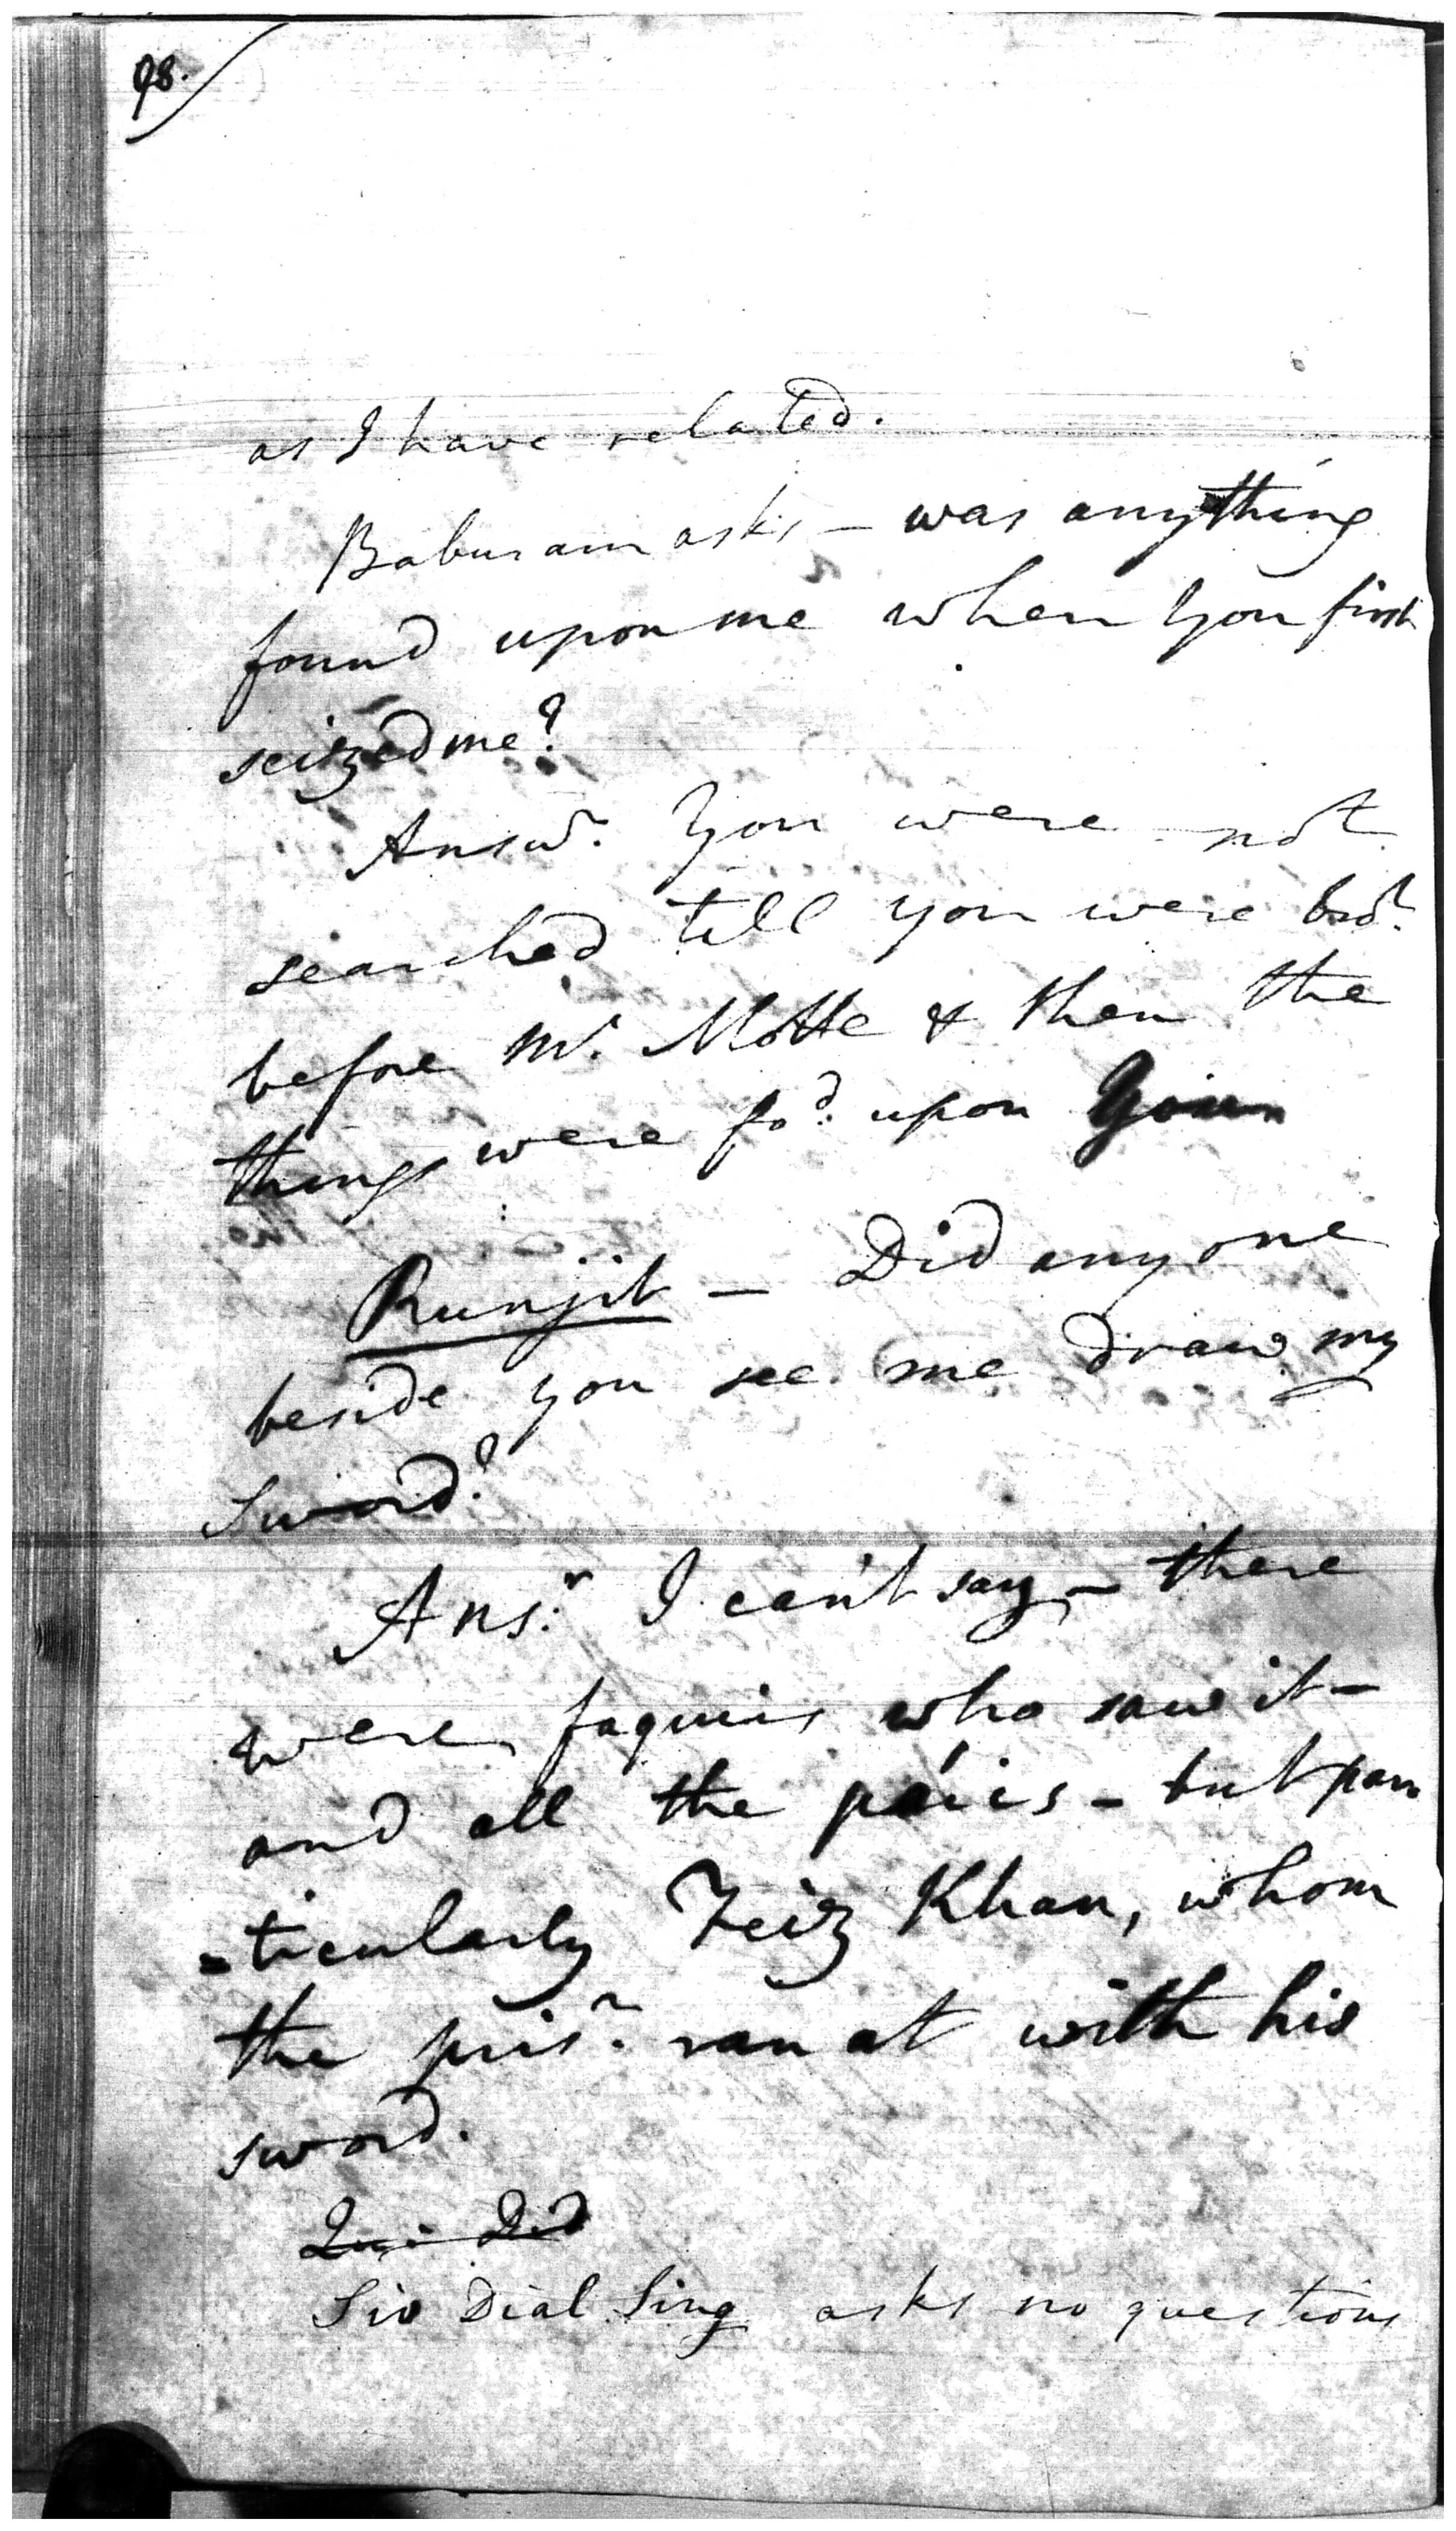 98.
as I have related.
Baburam asks – was anything
found upon me when you first
seized me?
Answr. You were not
searched till you were bro.t
before Mr. Motte & then the
things were fo.d upon you
Runjit – Did any one
beside you see me draw my
Sword?
Ans.r I can't say – there
were faquirs who saw it –
and all the – but par
=ticularly Feiz Khan, whom
the pris.r ran at with his
sword.
Qu: Did
Sio Dial Sing asks no questions